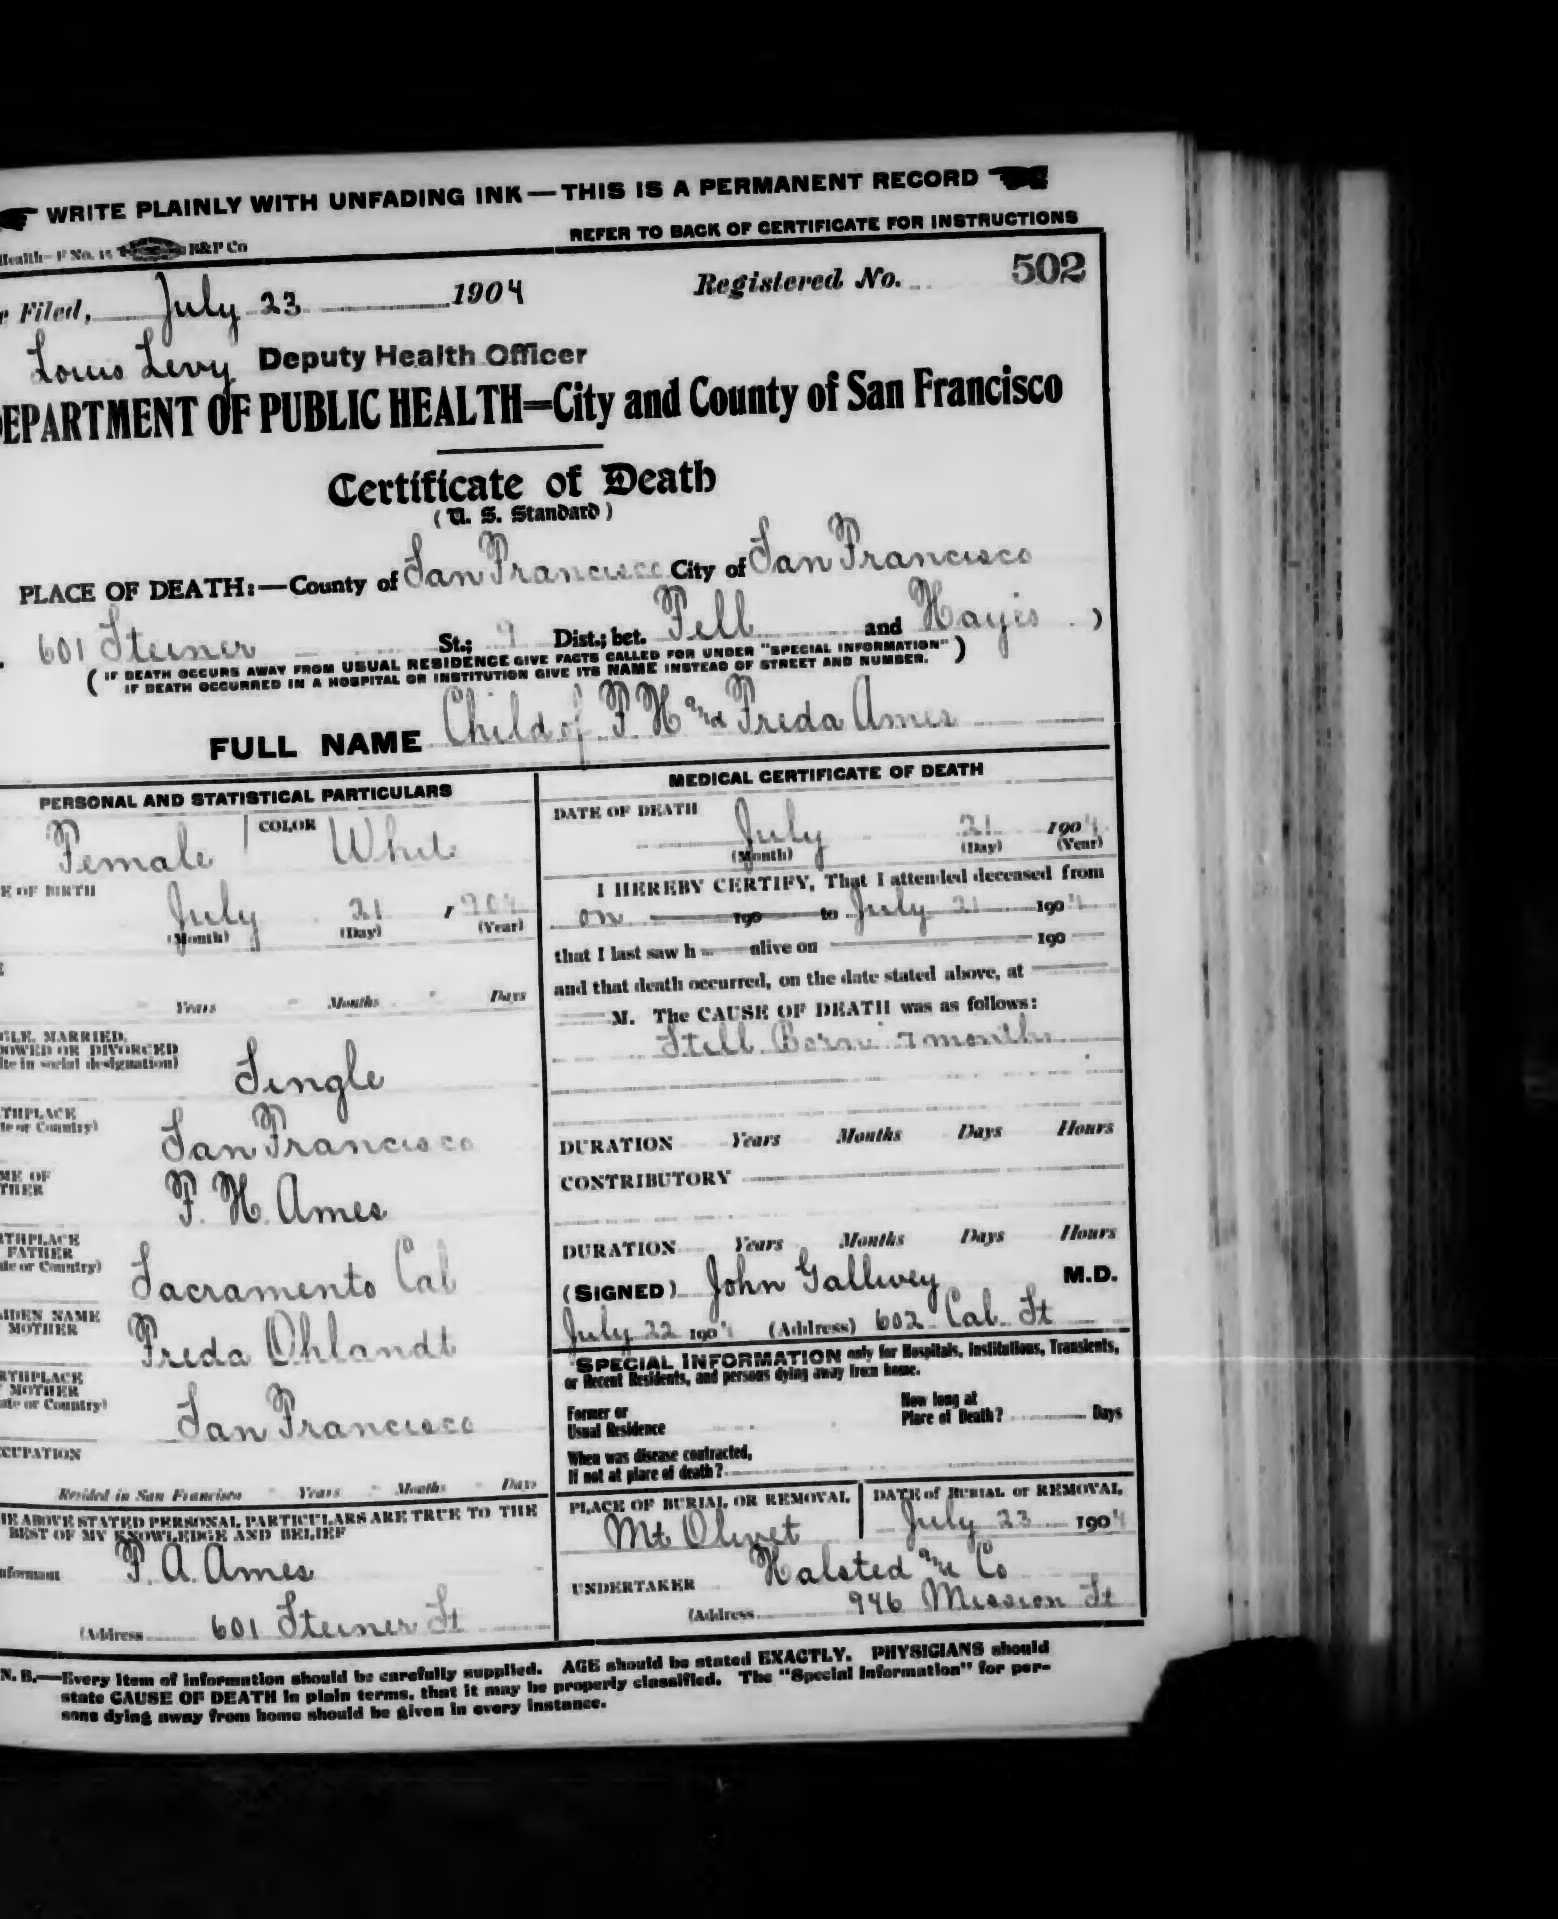 WRITE PLAINLY WITH UNFADING INK—THIS IS A PERMANENT RECORD
REFER TO BACK OF CERTIFICATE FOR INSTRUCTIONS
Health—F No. 15 B&P Co
Filed, July 23 1904 Registered No. 502
Louis Levy Deputy Health Officer
DEPARTMENT OF PUBLIC HEALTH=City and County of San Francisco
Certificate of Death
(U. S. Standard)
PLACE OF DEATH:—County of San Francisco City of San Francisco
601 Steiner St.; 9 Dist.; bet. Fell and Hayes )
( IF DEATH OCCURS AWAY FROM USUAL RESIDENCE GIVE FACTS CALLED FOR UNDER "SPECIAL INFORMATION" )
IF DEATH OCCURRED IN A HOSPITAL OR INSTITUTION GIVE ITS NAME INSTEAD OF STREET AND NUMBER.
FULL NAME Child of F H and Freda Ames
PERSONAL AND STATISTICAL PARTICULARS
Female COLOR White
E OF BIRTH
July 21 , 904
(Month) (Day) (Year)
Years Months Days
GLE, MARRIED,
OWED OR DIVORCED
ite in social designation)
Single
THPLACE
te or Country)
San Francisco
ME OF
THER
F. H. Ames
RTHPLACE
FATHER
ate or Country)
Sacramento Cal
AIDEN NAME
MOTHER
Freda Ohlandt
RTHPLACE
MOTHER
ate or Country)
San Francisco
CCUPATION
Resided in San Francisco Years Months Days
HE ABOVE STATED PERSONAL PARTICULARS ARE TRUE TO THE
BEST OF MY KNOWLEDGE AND BELIEF
nformant F. A. Ames
(Address 601 Steiner St
MEDICAL CERTIFICATE OF DEATH
DATE OF DEATH
July 21 1904
(Month) (Day) (Year)
I HEREBY CERTIFY, That I attended deceased from
on 190 to July 21 1904
that I last saw h alive on 190
and that death occurred, on the date stated above, at
M. The CAUSE OF DEATH was as follows:
Still Born 7 months
DURATION Years Months Days Hours
CONTRIBUTORY
DURATION Years Months Days Hours
(SIGNED) John Gallwey M.D.
July 22 1904 (Address) 602 Cal. St
SPECIAL INFORMATION only for Hospitals, Institutions, Transients,
or Recent Residents, and persons dying away from home.
Former or
Usual Residence
How long at
Place of Death? Days
When was disease contracted,
If not at place of death?
PLACE OF BURIAL OR REMOVAL
Mt Olivet
DATE of BURIAL or REMOVAL
July 23 1904
UNDERTAKER Halsted and Co
(Address 946 Mission St
N. B.—Every item of information should be carefully supplied. AGE should be stated EXACTLY. PHYSICIANS should
state CAUSE OF DEATH in plain terms, that it may be properly classified. The "Special Information" for per-
sons dying away from home should be given in every instance.